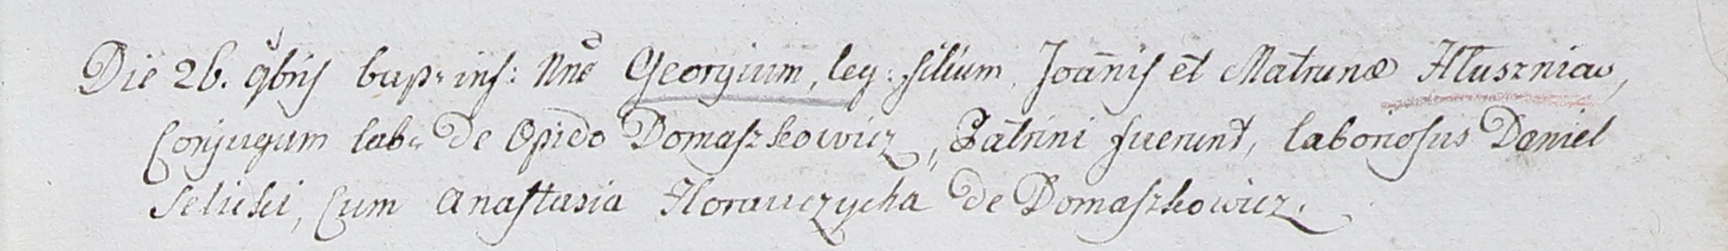 Die 26. 9bris bap. ins: Nne Georgium, leg: filium Joannis et Matrunæ Hłuszniaw,
Conjugum lab. De Opido Domaszkowicz, Patrini fuerunt, laboriosus Daniel
Selicki, Cum Anastasia Horawczycha De Domaszkowicz.